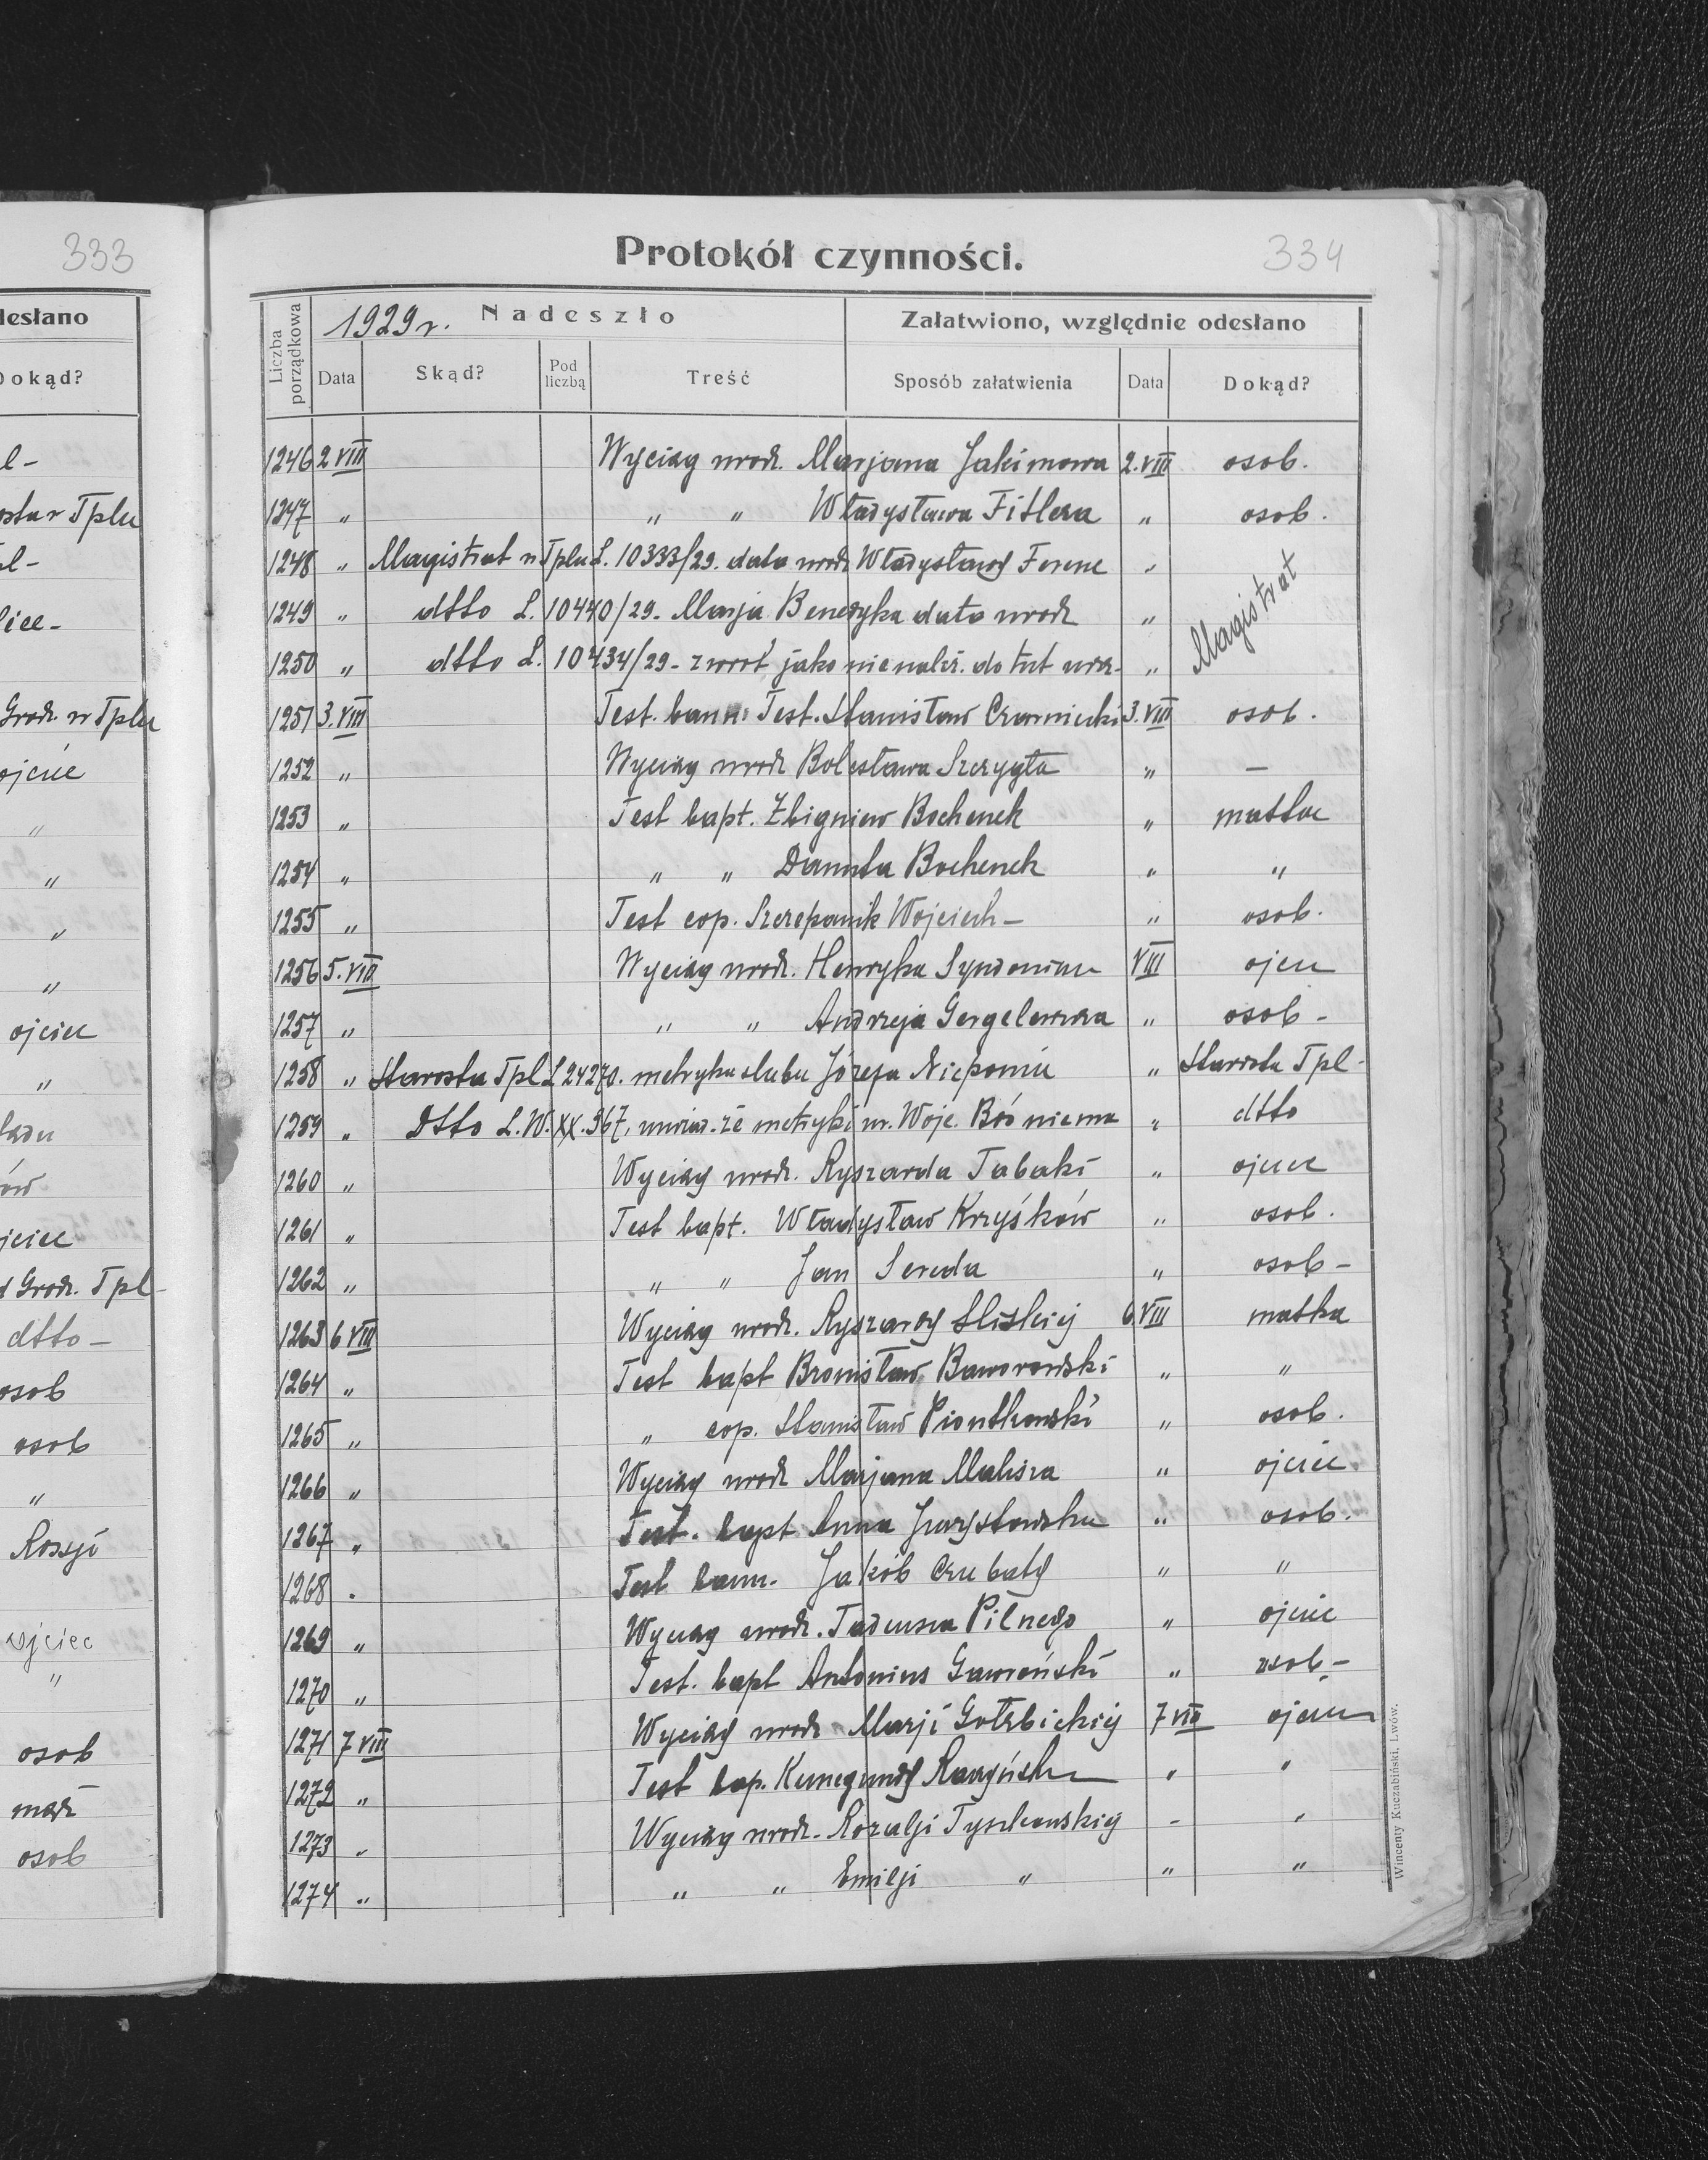 333
desłano
Dokąd?
l-
osta w Tplu
pl-
liec-
Grodz. w Tplu
ojciec
"
"
"
"
ojciec
"
ładu
ów
jciec
d Grodz. Tpl-
dtto-
osob
osob
"
Rossji
ojciec
"
osob
mąż
osob
Protokół czynności.
334
Liczba porządkowa
1929 r.
Nadeszło
Załatwiono, względnie odesłano
Data
Skąd?
Pod liczbą
Treść
Sposób załatwienia
Data
Dokąd?
1246 2 VIII Wyciąg urodz. Marjana Jakimowa 2.VIII osob.
1247 " " " Władysława Fitlera " osob.
1248 " Magistrat w Tplu L. 10333/29. data urodz Władysławy Ferenc "
1249 " dtto L. 10440/29. Marja Benedyka data urodz "
Magistrat
1250 " dtto L. 10434/29 - zwrot jako nienależ. do tut urz. "
1251 3.VIII Test. bann. Test. Stanisław Czarniecki 3.VIII osob.
1252 " Wyciąg urodz Bolesława Szczygła " —
1253 " Test bapt. Zbigniew Bochenek " matka
1254 " " " Danuta Bochenek " "
1255 " Test cop. Szczepanik Wojciech - " osob.
1256 5.VIII Wyciąg urodz. Henryka VIII ojciec
1257 " " " Andrzeja Gergelewicza " osob-
1258 " Starosta Tpl L 24270. metryka ślubu Józefa " Starosta Tpl-
1259 " Dtto L.W.XX.367, uwiad. że metryki ur. Wojc. Boś niema " dtto
1260 " Wyciąg urodz. Ryszarda Tabaki " ojciec
1261 " Test bapt. Władysław Krzyśków " osob.
1262 " " " Jan Sereda " osob-
1263 6 VIII Wyciąg urodz. Ryszardy Śliskiej 6 VIII matka
1264 " Test bapt Bronisław Baworowski " "
1265 " " cop. Stanisław Piontkowski " osob.
1266 " Wyciąg urodz Marjana Malisza " ojciec
1267 " Test. bapt Anna " osob.
1268 . Test bann. Jakób Czubaty " "
1269 " Wyciąg urodz. Tadeusza Pilnego " ojciec
1270 " Test. bapt Antonius Gawroński " osob-
1271 7 VIII Wyciąg urodz Marji Gołębickiej 7 VIII ojciec
1272 " Test bap. Kunegundy " "
1273 " Wyciąg urodz. Rozalji Tyszkowskiej - "
1274 " " " Emilji " " "
Wincenty Kuczabiński, Lwów.